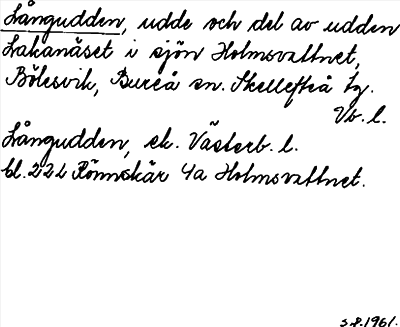 Långudden, udde och del av udden
Lakanäset i sjön Holmsvattnet,
Bölesvik, Bureå sn. Skellefteå tg.
Vb. l.
Långudden, ek. Västerb. l.
bl. 224 Rönnskär 4a Holmsvattnet.
S.P. 1961.